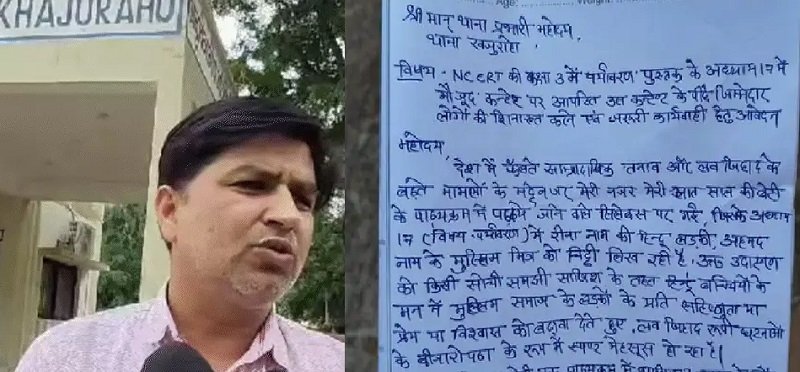 KHAJURAHO
Age: Weight:
श्री मान थाना प्रभारी महोदय
थाना खजुराहो,
विषय - NCERT की कक्षा 3 में पर्यावरण पुस्तक के अध्याय 17 में
मौजूद कन्टेन्ट पर आपत्ति उस कन्टेण्ट के पीछे जिम्मेदार
लोगों की शिनाख्त करने एवं जरूरी कार्यवाही हेतु आवेदन
महोदय,
देश में फैलते साम्प्रदायिक तनाव और लव जिहाद के
बढ़ते मामलों के मद्देनजर मेरी नजर मेरी आठ साल की बेटी
के पाठ्यक्रम में पढ़ाये जाने वाले सिलेबस पर गई, जिसके अध्याय
17 (विषय-पर्यावरण) में रीना नाम की हिन्दू लड़की, अहमद
नाम के मुस्लिम मित्र को चिट्ठी लिख रही है, उक्त उदाहरण
को किसी सोची समझी साजिश के तहत हिन्दू बच्चियों के
मन में मुस्लिम समाज के लड़कों के प्रति सहिष्णुता या
प्रेम या विश्वास को बढ़ावा देते हुए, लव जिहाद रूपी घटनाओं
के बीजारोपण के रूप में स्पष्ट मेहसूस हो रहा है।